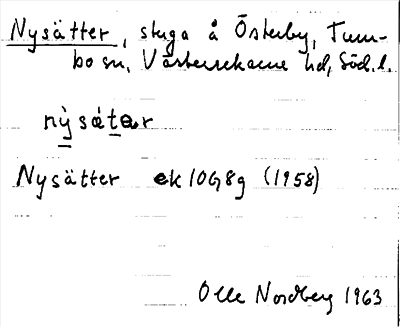 Nysätter, stuga å Österby, Tum-
bo sn, Västerrekarne hd, Söd. l.
nỳsátər
Nysätter ek 10G8g (1958)
Olle Nordberg 1963